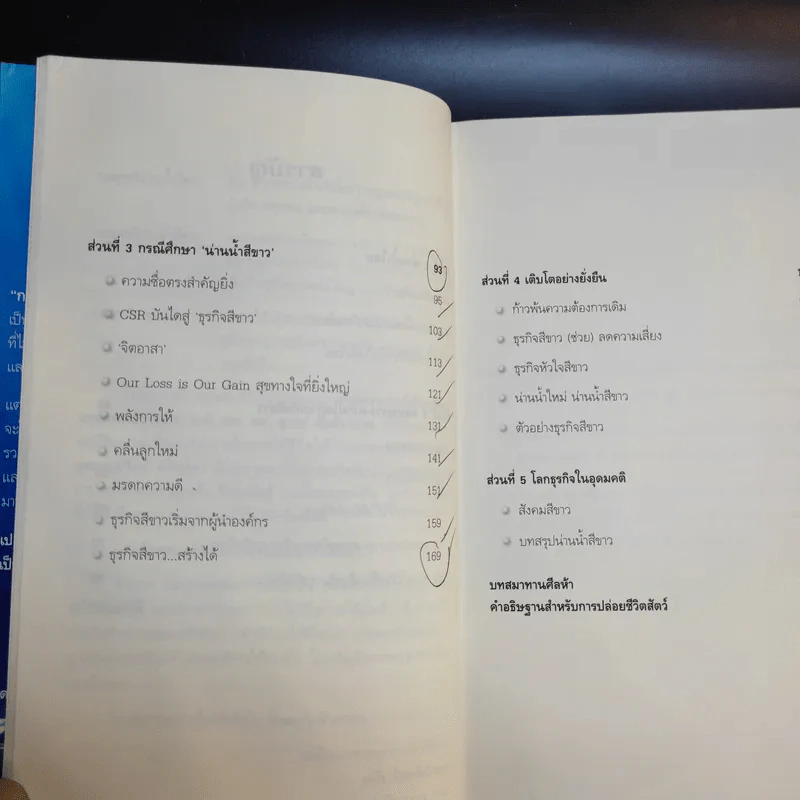 ส่วนที่ 3 กรณีศึกษา 'น่านน้ำสีขาว' 93
ความซื่อตรงสำคัญยิ่ง 95
CSR บันไดสู่ 'ธุรกิจสีขาว' 103
'จิตอาสา' 113
Our Loss is Our Gain สุขทางใจที่ยิ่งใหญ่ 121
พลังการให้ 131
คลื่นลูกใหม่ 141
มรดกความดี 151
ธุรกิจสีขาวเริ่มจากผู้นำองค์กร 159
ธุรกิจสีขาว...สร้างได้ 169
ส่วนที่ 4 เติบโตอย่างยั่งยืน
ก้าวพ้นความต้องการเดิม
ธุรกิจสีขาว (ช่วย) ลดความเสี่ยง
ธุรกิจหัวใจสีขาว
น่านน้ำใหม่ น่านน้ำสีขาว
ตัวอย่างธุรกิจสีขาว
ส่วนที่ 5 โลกธุรกิจในอุดมคติ
สังคมสีขาว
บทสรุปน่านน้ำสีขาว
บทสมาทานศีลห้า
คำอธิษฐานสำหรับการปล่อยชีวิตสัตว์